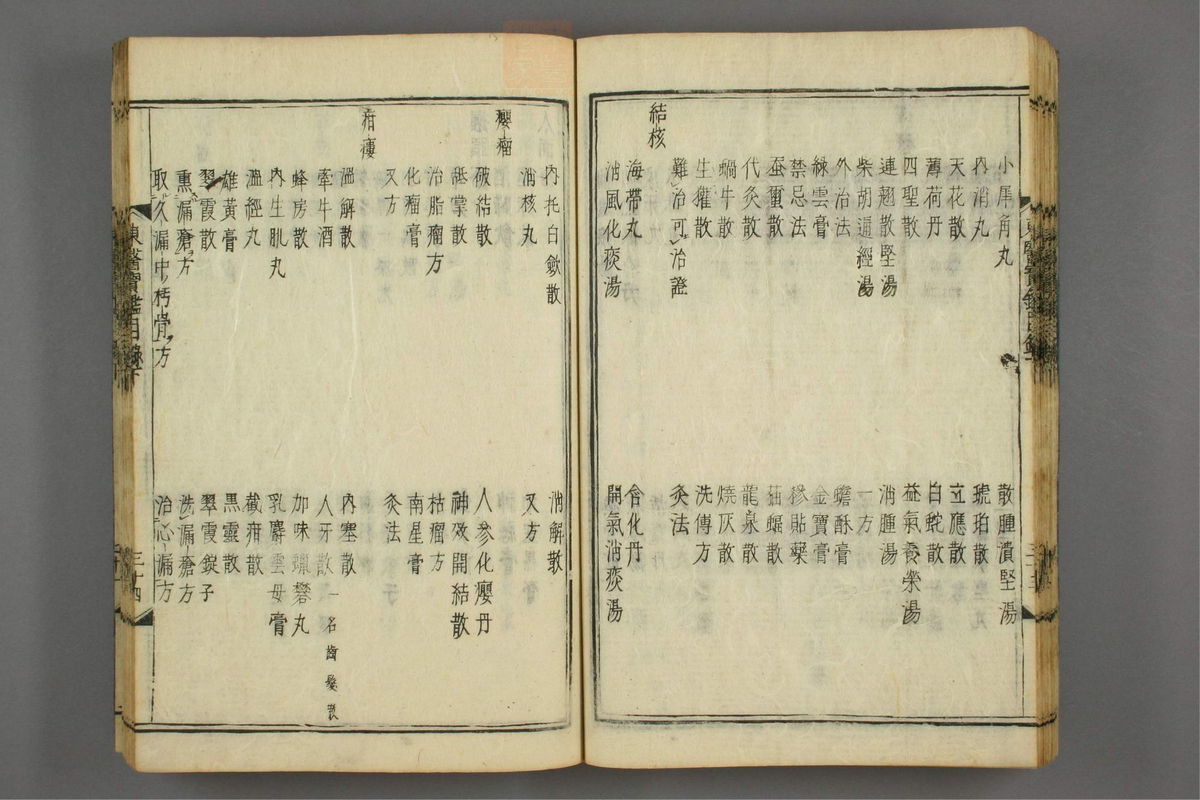 小犀角丸 散腫潰堅湯
內消丸 琥珀散
天花散 立應散
薄荷丹 白蛇散
四聖散 益氣養榮湯
連翹散堅湯 消腫湯
柴胡通經湯 一方
外治法 蟾酥膏
綠雲膏 金寶膏
禁忌法 糝貼藥
蚕蠒散 蝙蝠散
代灸散 龍泉散
蝸牛散 燒灰散
生㹠散 洗傅方
難治可治證 灸法
結核
海帶丸 含化丹
消風化痰湯 開氣消痰湯
內托白斂散 消解散
消核丸 又方
癭瘤
破結散 人參化癭丹
舐掌散 神效開結散
治脂瘤方 枯瘤方
化瘤膏 南星膏
又方 灸法
疳瘻
溫解散 內塞散
牽牛酒 人牙散一名齒髮散
蜂房散 加味蠟礬丸
內生肌丸 乳麝雲母膏
溫經丸 截疳散
雄黃膏 黑靈散
翠霞散 翠霞錠子
熏漏瘡方 洗漏瘡方
取久漏中朽骨方 治心漏方
東醫寶鑑目錄下 三十四